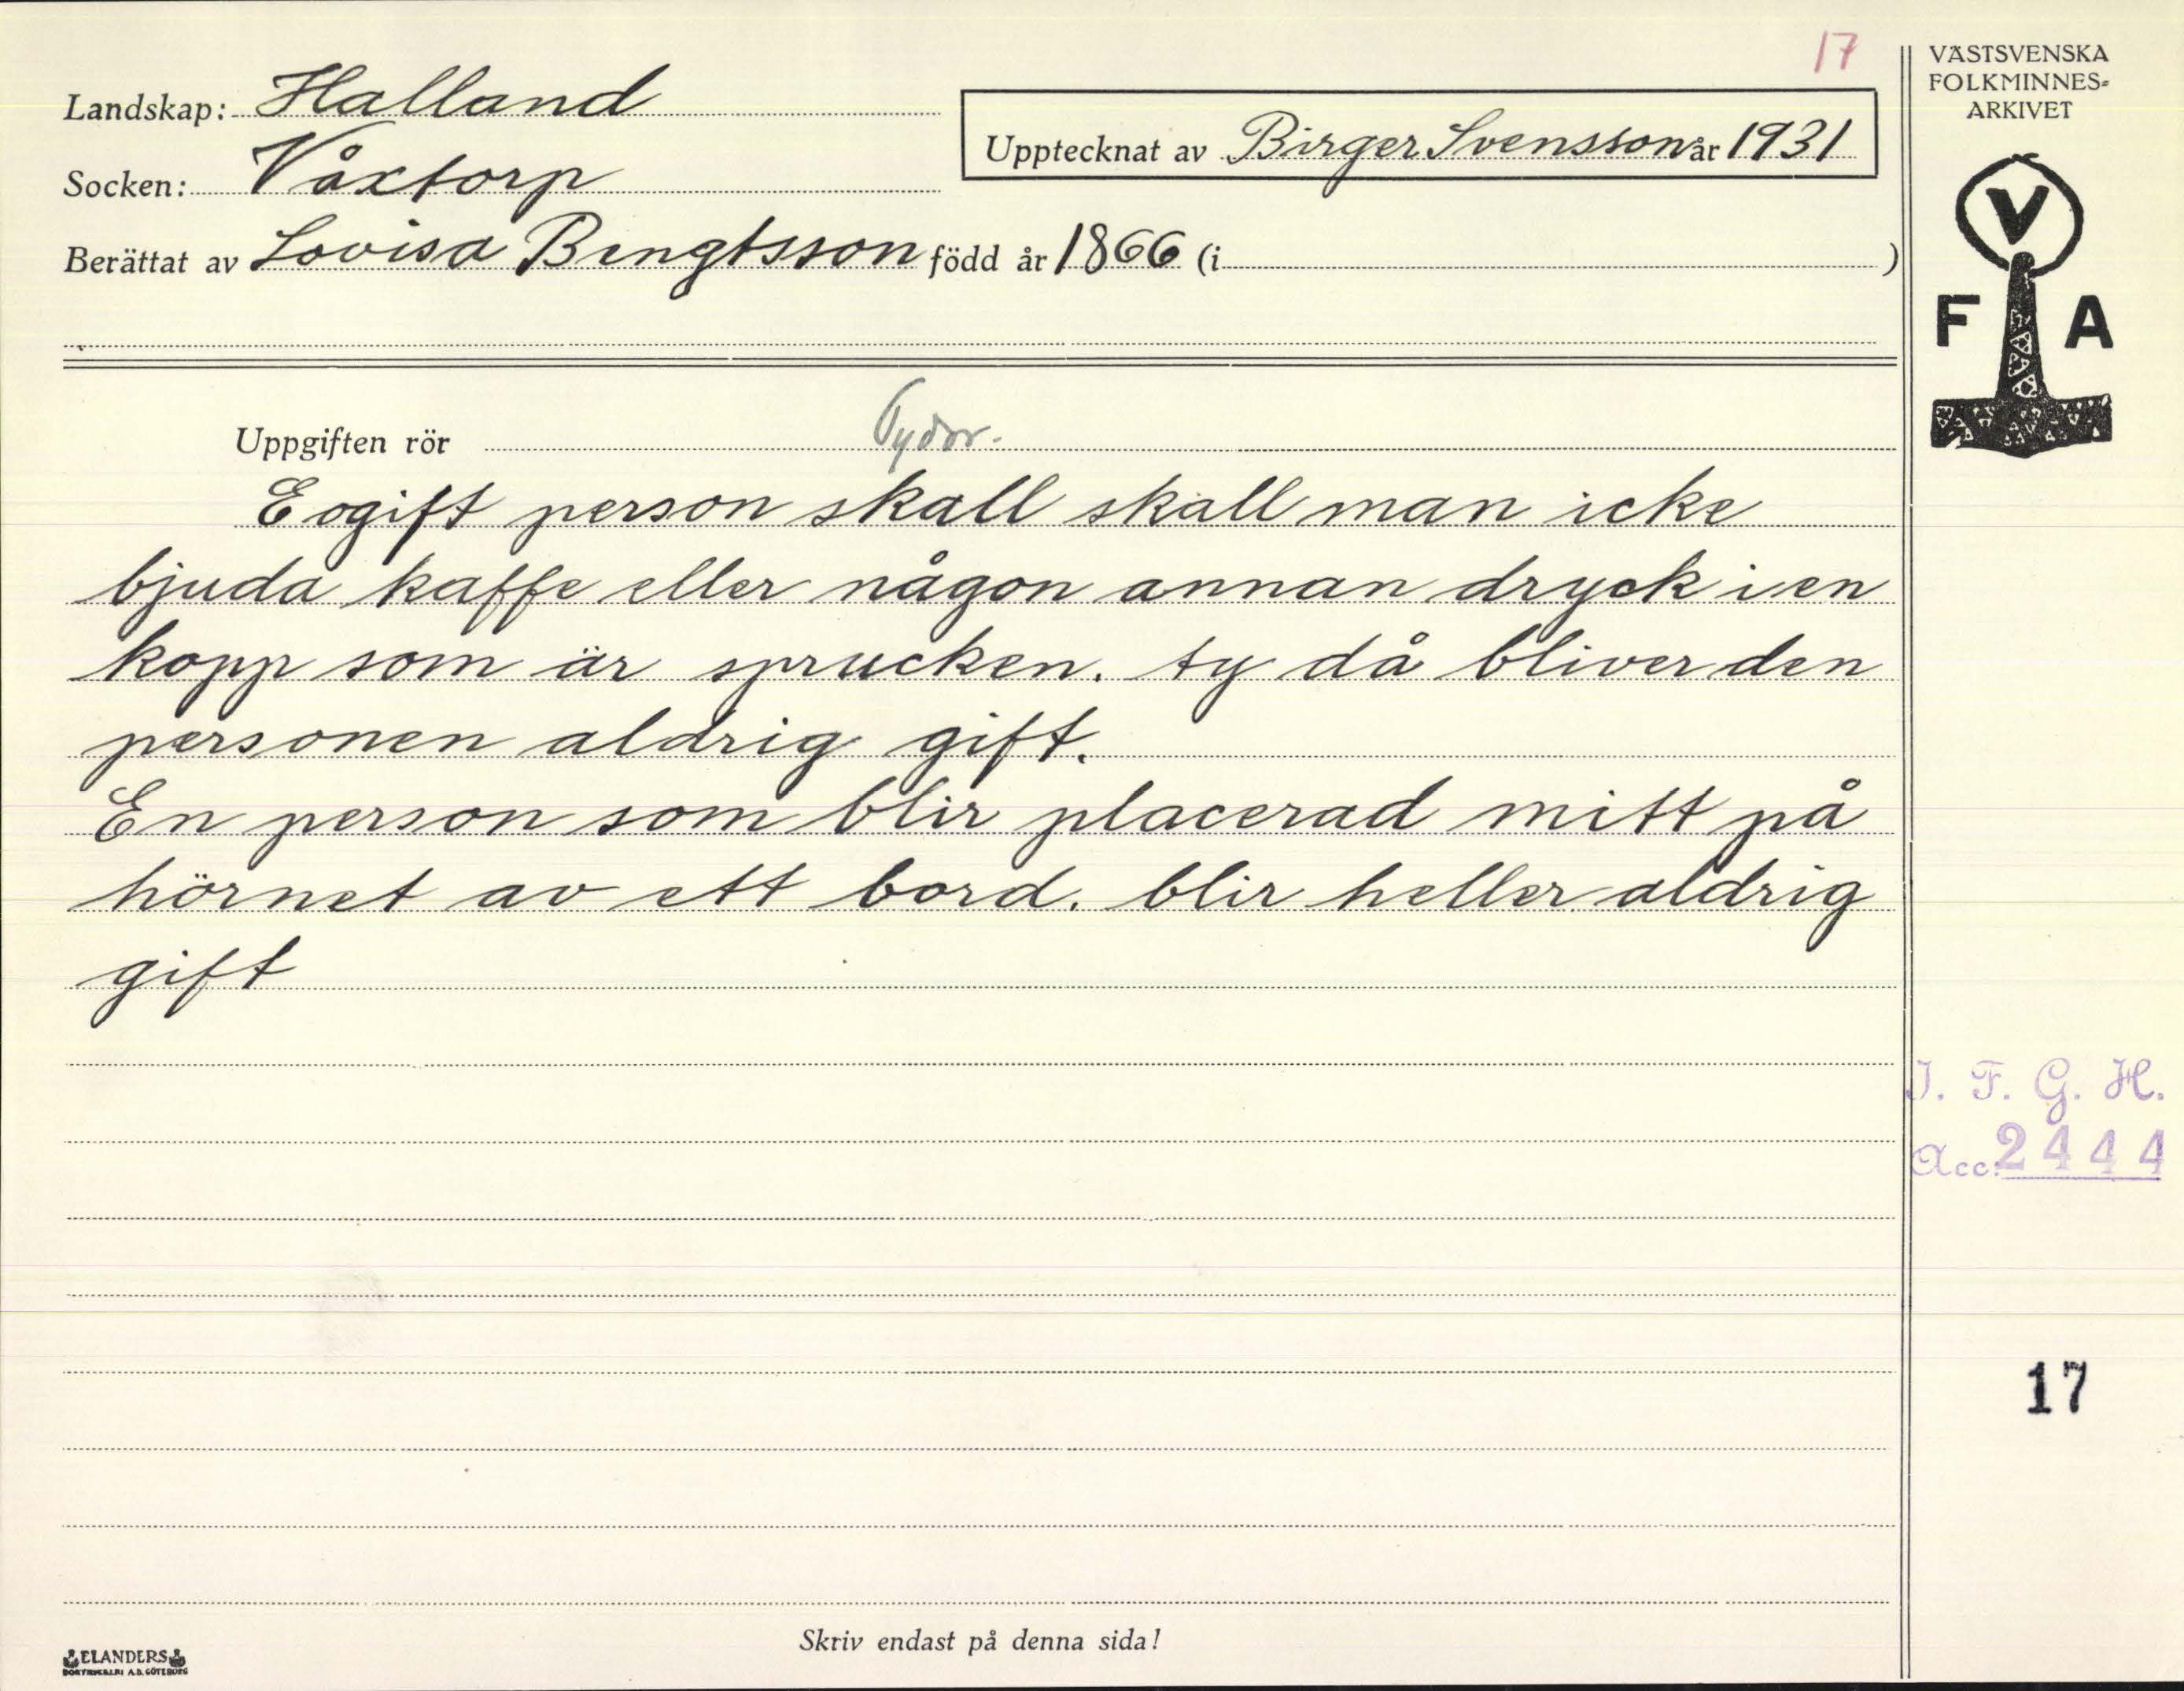 17
Landskap: Halland
Socken: Våxtorp
Upptecknat av Birger Svensson år 1931
Berättat av Lovisa Bengtsson född år 1866 (i )
VÄSTSVENSKA
FOLKMINNES-
ARKIVET
V
F A
Uppgiften rör Tydor.
E ogift person skall skall man icke
bjuda kaffe eller någon annan dryck i en
kopp som är sprucken. ty då bliver den
personen aldrig gift.
En person som blir placerad mitt på
hörnet av ett bord. blir heller aldrig
gift
I. F. G. H.
Acc. 2444
17
Skriv endast på denna sida!
ELANDERS
BOKTRYCKERI A.B. GÖTEBORG